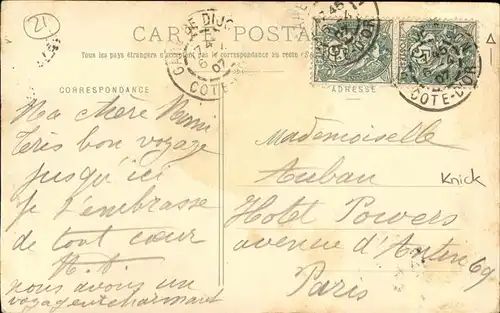 21
CARTE POSTALE
Tous les pays étrangers n'acceptent pas la correspondance au recto
CORRESPONDANCE
ADRESSE
GARE DE DIJON
07
COTE-D'OR
COTE-D'OR
Ma chère Mimi
Très bon voyage
jusqu'ici
je t'embrasse
de tout cœur
nous avons un
voyage charmant
Mademoiselle
Auban
Hotel Powers
avenue d'Antin 69
Paris
Knick